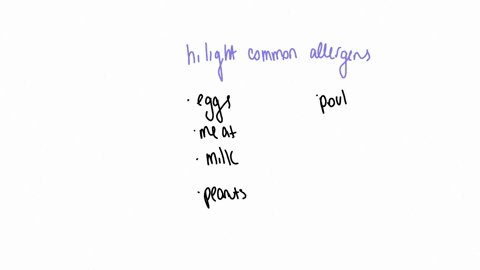 hilight common allergens
· eggs
· meat
· milk
· peants
· poul